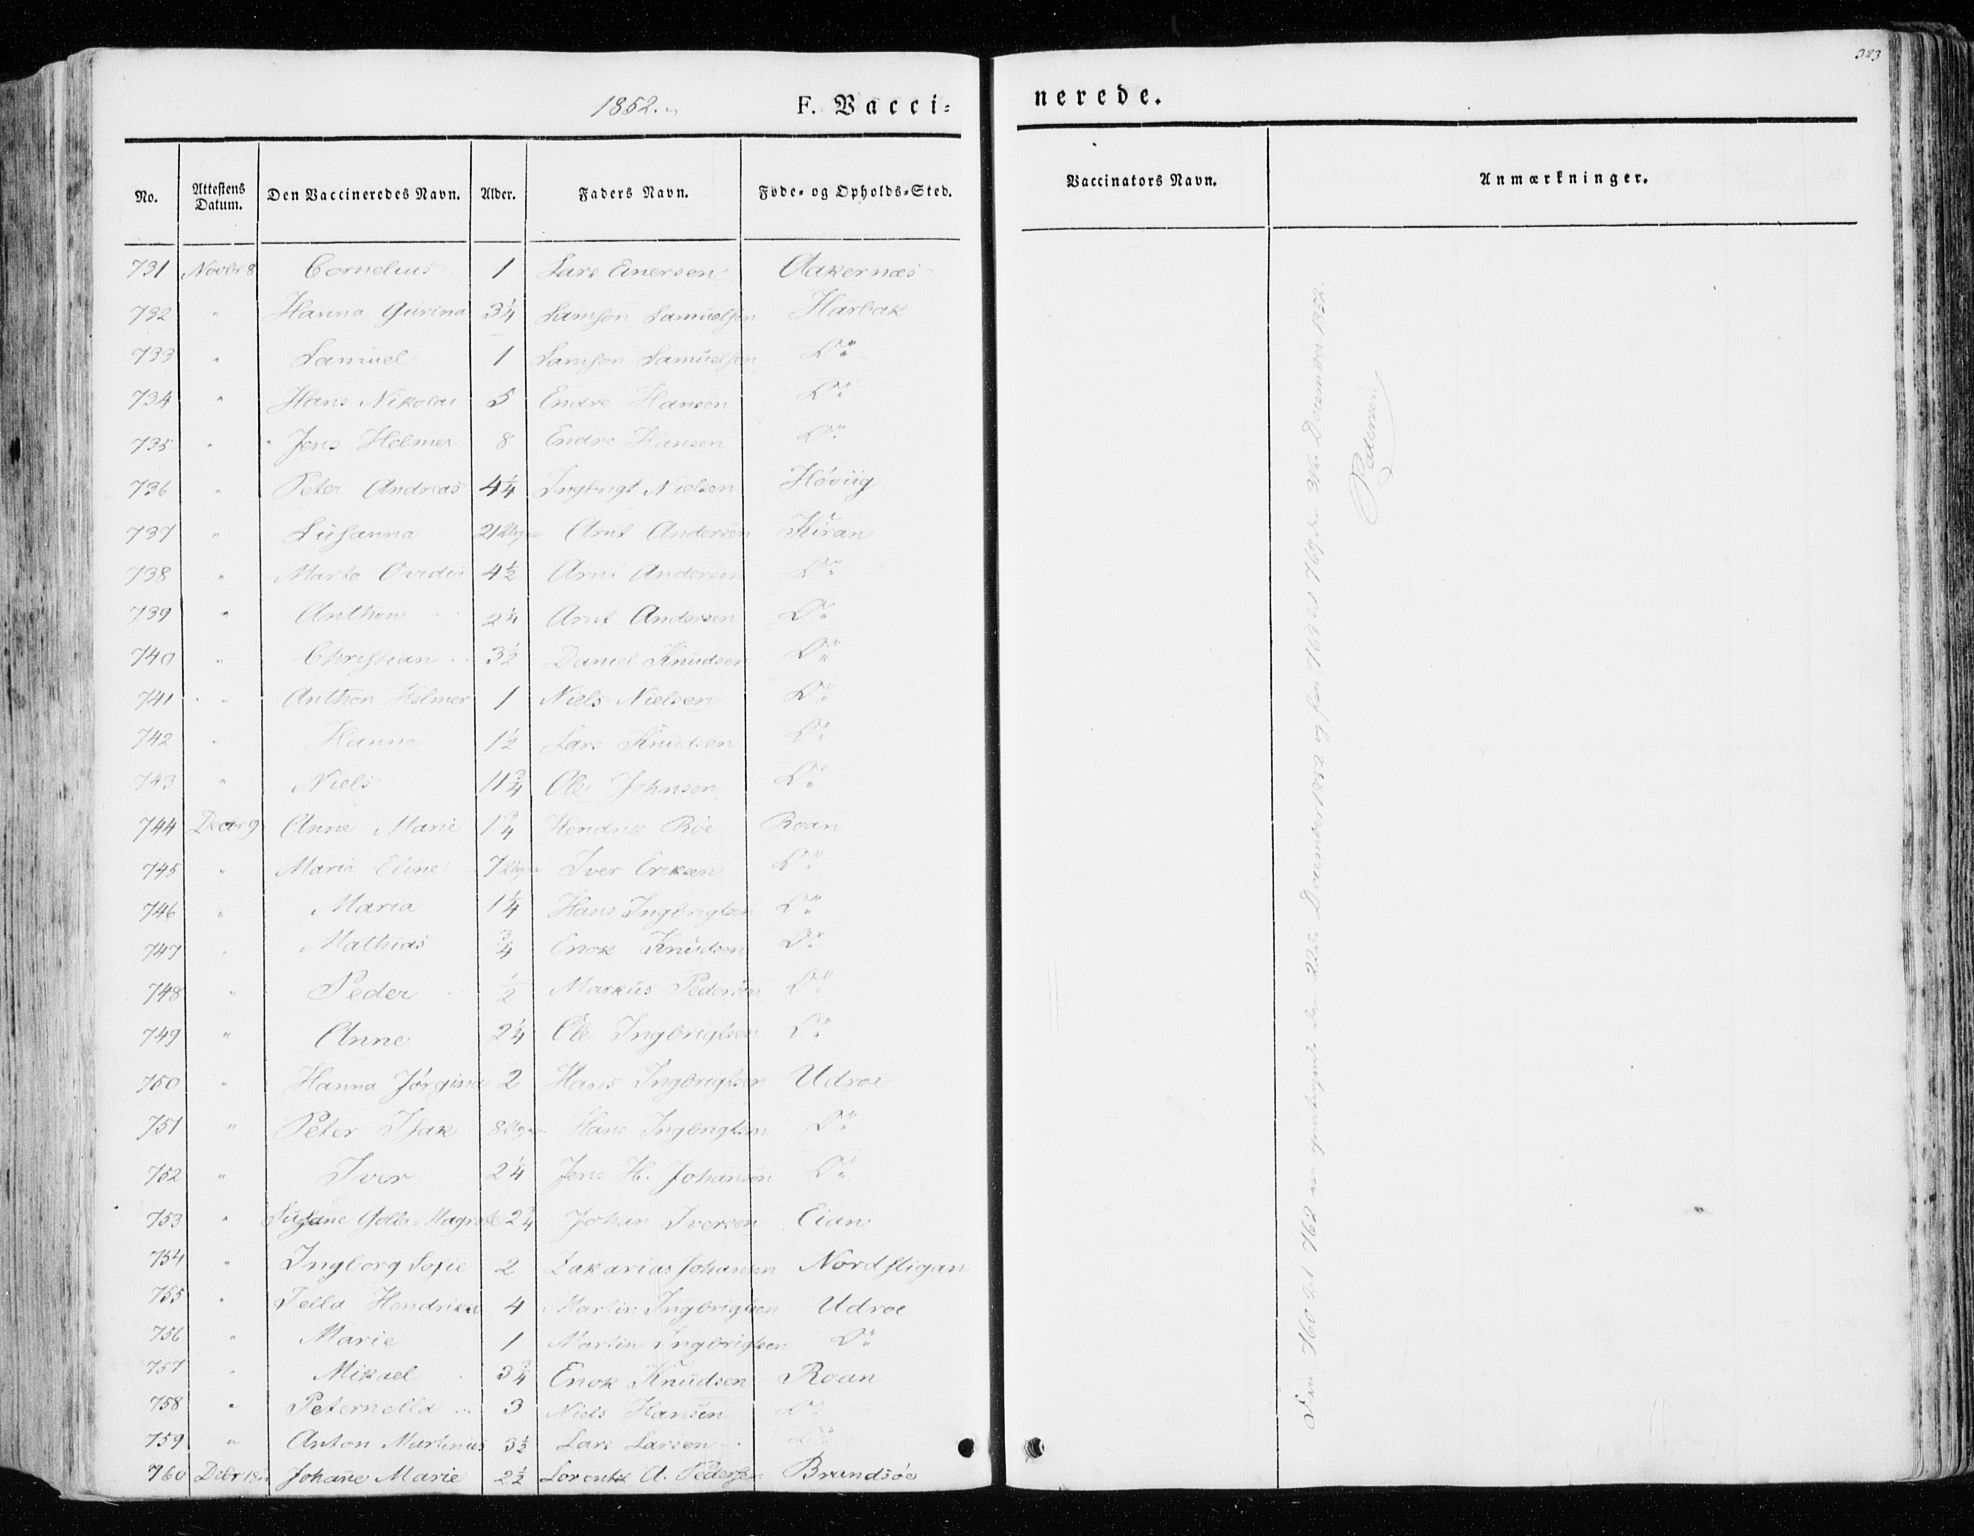 323
1852.
F. Vacci=
nerede.
No. Attestens Datum. Den Vaccineredes Navn. Alder. Faders Navn. Føde- og Opholds-Sted. Vaccinators Navn. Anmærkninger.
731 Novbr 8 Cornelius 1 Lars Einersen Aakernæs
732 " Hanna Gurina 3¼ Samson Samuelsen Harbak
733 " Samuel 1 Samson Samuelsen Do
734 " Hans Nikolai 5 Endre Hansen Do
735 " Jens Helmer 8 Endre Hansen Do
736 " Peter Andreas 4¼ Ingbrigt Nielsen Høviig
737 " Susanna 21 Arnt Andersen Kiran
738 " Marta 4½ Arnt Andersen Do
739 " Anthon 2¼ Arnt Andersen Do
740 " Christian 3½ Daniel Knudsen Do
741 " Anthon Helmer 1 Niels Nielsen Do
742 " Hanna 1½ Lars Knudsen Do
743 " Niels 11¾ Ole Johnsen Do
744 Decbr 9 Anne Marie 1¾ Hendrik Röe Roan
745 " Maria Eline 7 Iver Eriksen Do
746 " Maria 1¼ Hans Ingbrigtsen Do
747 " Mathias ¾ Enok Knudsen Do
748 " Peder ½ Markus Pedersen Do
749 " Anne 2¼ Ole Ingbrigtsen Do
750 " Hanna Jørgina 2 Hans Ingbrigtsen Udroe
751 " Peter Isak 8 Hans Ingbrigtsen Do
752 " Iver 2¼ Jens H. Johansen Do
753 " Susane 2¾ Johan Iversen Eian
754 " Ingborg Sofie 2 Zakarias Johansen Nordskigan
755 " Pella Hendrikke 4 Martin Ingbrigtsen Udroe
756 " Marie 1 Martin Ingbrigtsen Do
757 " Mikael 3¾ Enok Knudsen Roan
758 " Peternella 3 Niels Hansen Do
759 " Anton Martinus 3½ Lars Larsen Do
760 Debr 18 Johane Marie 2½ Lorentz A. Pedersen Brandsöe
Fra 760 til 762 den 22de December 1852 og fra 763 til 769 den 31te December 1852.
Pedersen